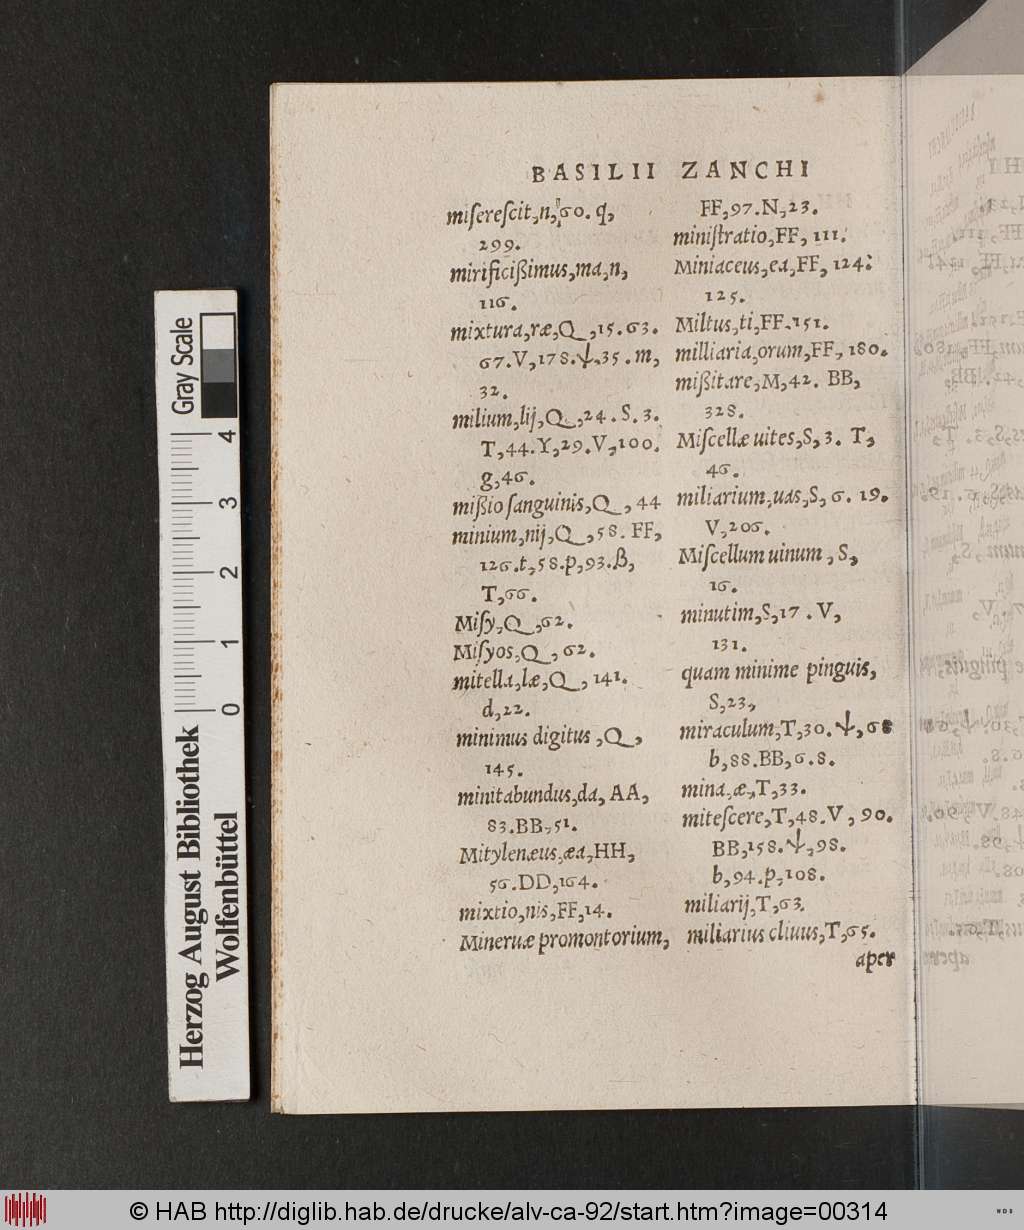 BASILII ZANCHI
miſereſcit,n,60. q,
299.
mirificißimus,ma,n,
116.
mixtura,ræ,Q,15.63.
67.V,178.ψ,35.m,
32.
milium,lij,Q,24.S.3.
T,44.Y,29.V,100.
g,46.
mißio ſanguinis,Q,44
minium,nij,Q,58.FF,
126.t,58.p,93.ß,
T,66.
Miſy,Q,62.
Miſyos,Q,62.
mitella,læ,Q,141.
d,22.
minimus digitus,Q,
145.
minitabundus,da,AA,
83.BB,51.
Mitylenæus,æa,HH,
56.DD,164.
mixtio,nis,FF,14.
Mineruæ promontorium,
FF,97.N,23.
miniſtratio,FF,111.
Miniaceus,ea,FF,124.
125.
Miltus,ti,FF.151.
milliaria,orum,FF,180.
mißitare,M,42.BB,
328.
Miſcellæ uites,S,3.T,
46.
miliarium,uas,S,6.19.
V,206.
Miſcellum uinum,S,
16.
minutim,S,17.V,
131.
quam minime pinguis,
S,23,
miraculum,T,30.ψ,68
b,88.BB,6.8.
mina,æ,T,33.
miteſcere,T,48.V,90.
BB,158.ψ,98.
b,94.p,108.
miliarij,T,63.
miliarius cliuus,T,65.
aper
Gray Scale
4
3
2
1
0
Herzog August Bibliothek
Wolfenbüttel
© HAB http://diglib.hab.de/drucke/alv-ca-92/start.htm?image=00314